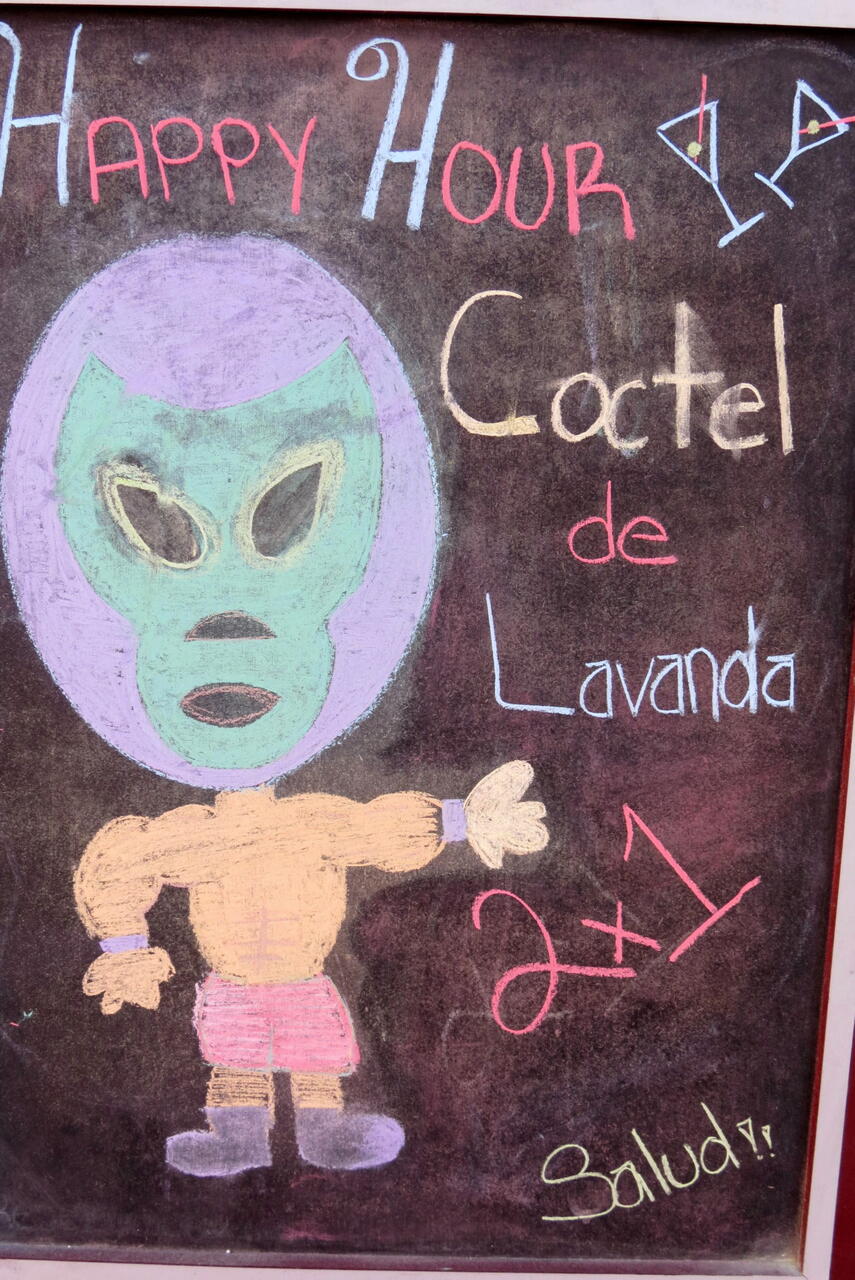 HAPPY HOUR
Coctel
de
Lavanda
2x1
Salud!!